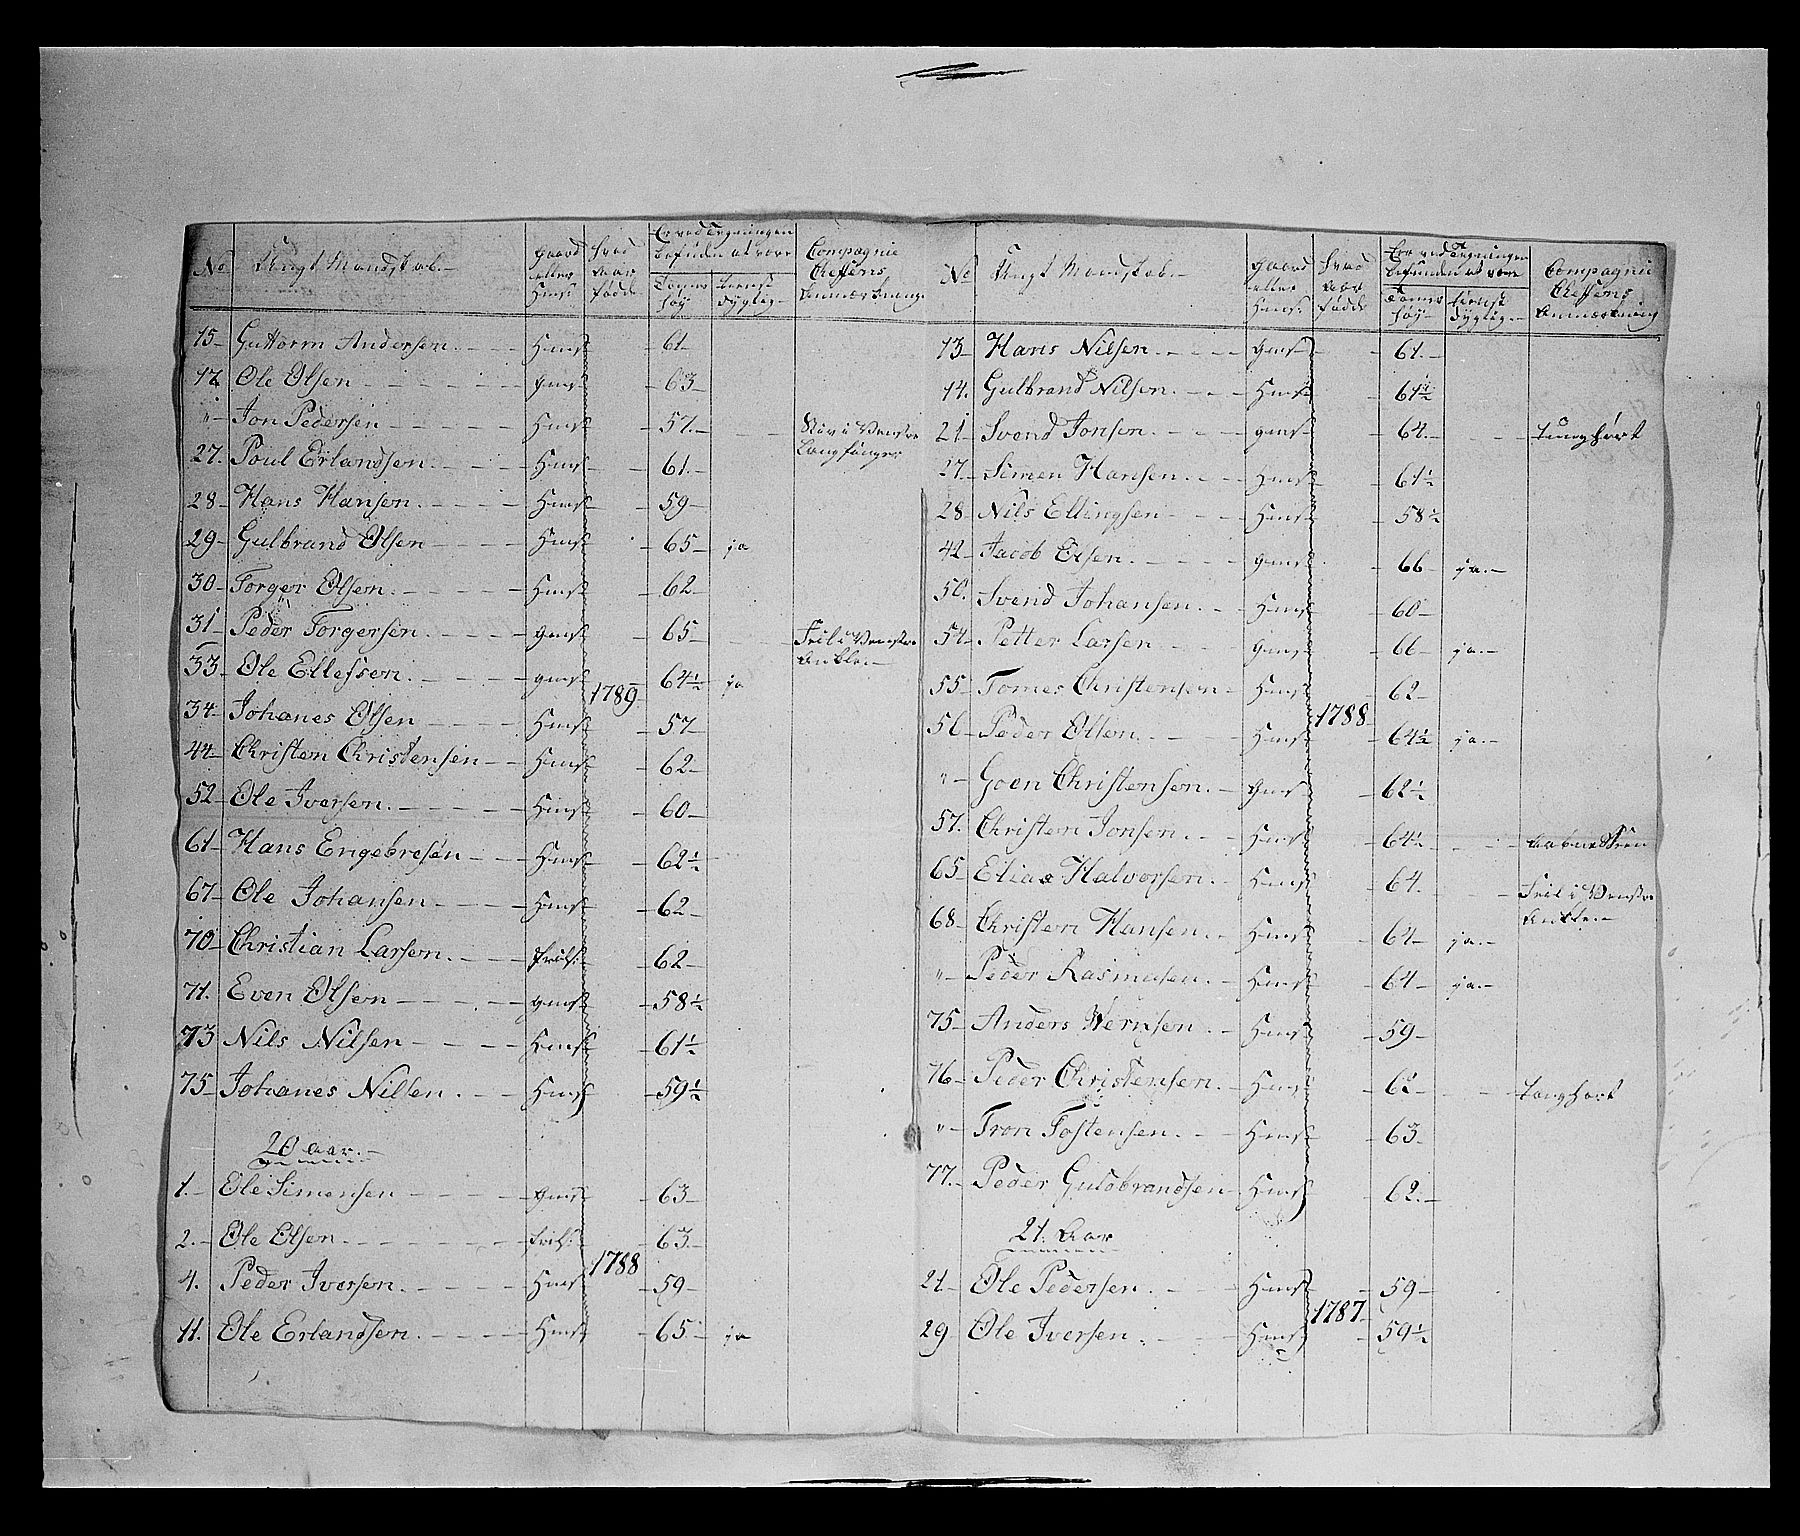 No Ungt Mandskab.- gaard eller Huus: hvad aar född Er ved Tegningen befunden at være Tomer höy tienst dygtig- Compagnie Cheffens Anmærkning
15- Guttorm Andersen. Huus 61-
17 Ole Olsen gaus 63-
"- Jon Pedersen Huus 57.- Stiv i Venstre Langfinger
27. Poul Erlandsen Huus 61.-
28- Hans Hansen. Huus 59-
29- Gulbrand Olsen Huus 65- ja
30- Torger Olsen. Huus 62-
31- Peder Torgersen. gaus 65- Feil i Venstre Ankle.-
33- Ole Ellefsen. gaus 64½ ja
1789
34- Johanes Olsen Huus 57-
44- Christen Christensen Huus 62-
52- Ole Iversen. Huus 60-
61- Hans Engebresen Huus 62½
67- Ole Johansen Huus 62-
70- Christian Larsen. 62-
71. Even Olsen gaus 58½
73 Nils Nilsen Huus 61½
75- Johanes Nilsen. Huus 59½
20 Aar.-
1.- Ole Simensen gaus 63-
2.- Ole Olsen. 63-
1788
4. Peder Iversen. Huus 59-
11. Ole Erlandsen. Huus 65- ja
No Ungt Mandskab.- gaard eller Huus: hvad aar född Er ved Tegningen befunden at være Tomer höy- tienst dygtig.- Compagnie Cheffens Anmærkning
13- Hans Nilsen. gaus 61.-
14. Gulbrand Nilsen. Huus 61½
21- Svend Jonsen. gaus 64.- Tunghört
27- Simen Hansen. Huus 61½
28- Nils Ellingsen Huus 58½
42- Jacob Olsen. gaus 66 ja.-
50. Svend Johansen. Huus 60-
54- Petter Larsen gaus 66- ja.-
55- Tomes Christensen Huus 62-
1788
56- Peder Olsen. Huus 64½ ja.-
"- Goen Christensen. gaus 62½
57. Christen Jonsen. Huus 64½ Aabne Been
65- Elias Halvorsen. Huus 64. Feil i Venstre Ankle.-
68- Christen Hansen. Huus 64- ja.-
"- Peder Rasmusen. Huus 64- ja.-
75- Anders Hernsen. Huus 59-
76- Peder Christensen. Huus 62- Tunghört
"- Tron Tostensen. Huus 63-
77.- Peder Guldbrandsen Huus 62.-
21. Aar
21- Ole Pedersen. Huus 59-
1787
29- Ole Iversen. Huus 59½